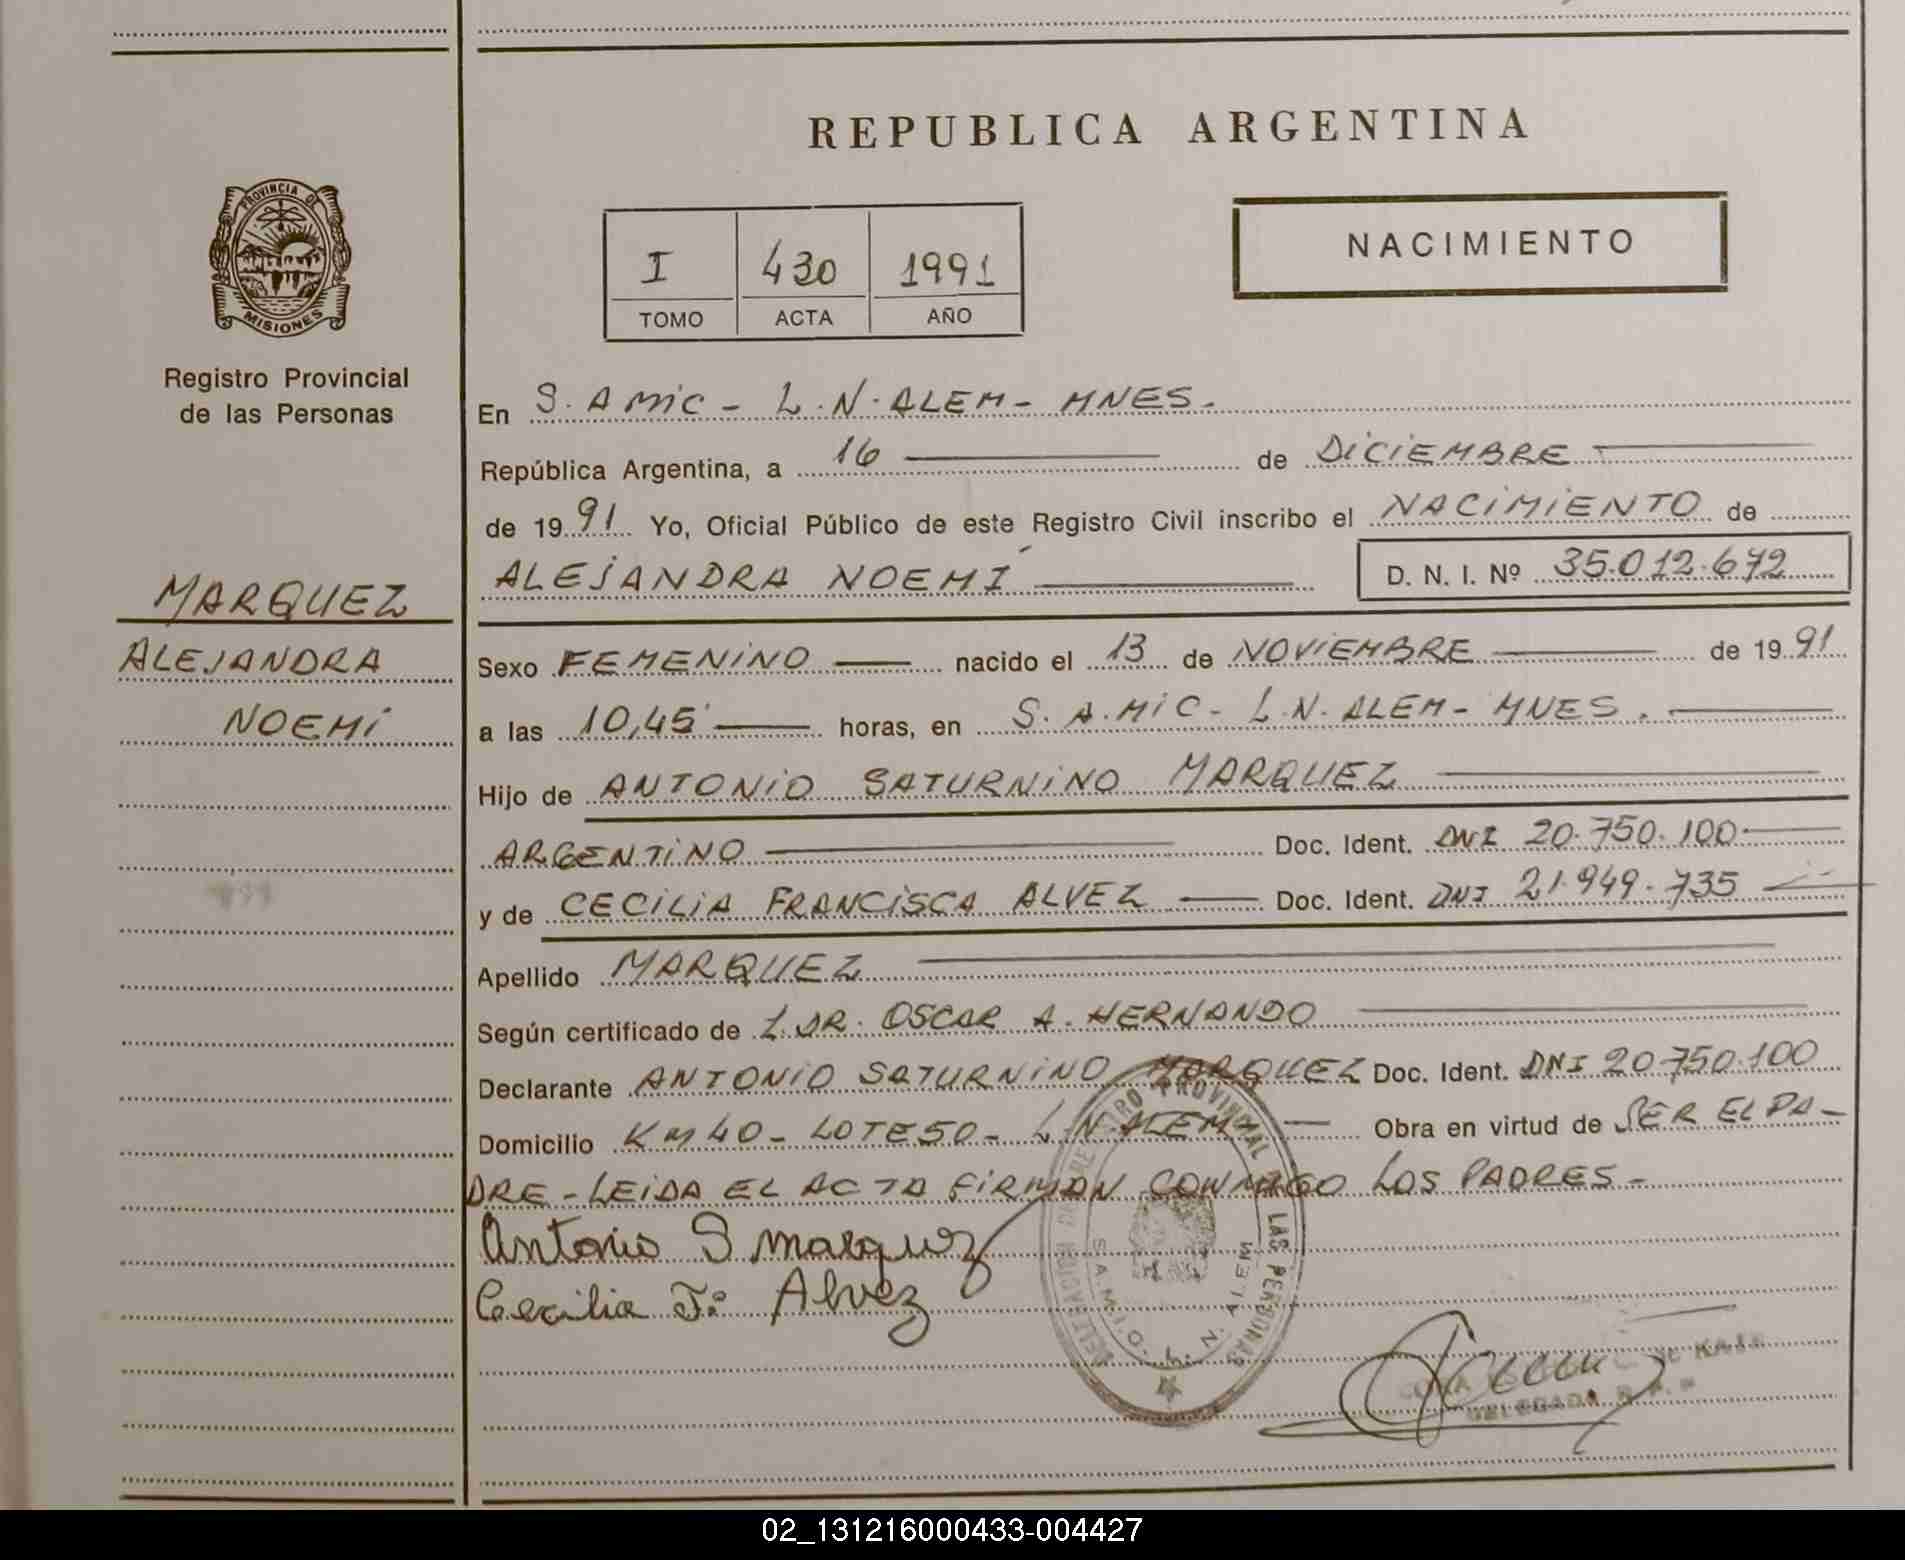 REPUBLICA ARGENTINA
PROVINCIA DE
MISIONES
Registro Provincial
de las Personas
I 430 1991
TOMO ACTA AÑO
NACIMIENTO
En S. AMIC - L.N. ALEM - MNES.
República Argentina, a 16 de DICIEMBRE
de 1991 Yo, Oficial Público de este Registro Civil inscribo el NACIMIENTO de
ALEJANDRA NOEMÍ D. N. I. Nº 35.012.672
MARQUEZ
ALEJANDRA
NOEMI
Sexo FEMENINO nacido el 13 de NOVIEMBRE de 1991
a las 10,45 horas, en S. A. MIC - L.N. ALEM - MNES.
Hijo de ANTONIO SATURNINO MARQUEZ
ARGENTINO Doc. Ident. DNI 20.750.100
y de CECILIA FRANCISCA ALVEZ Doc. Ident. DNI 21.949.735
Apellido MARQUEZ
Según certificado de L. DR. OSCAR A. HERNANDO
Declarante ANTONIO SATURNINO MARQUEZ Doc. Ident. DNI 20.750.100
Domicilio KM 40 - LOTE 50 - L.N. ALEM - Obra en virtud de SER EL PA-
DRE - LEIDA EL ACTA FIRMAN CONMIGO LOS PADRES -
Antonio S Marquez
Cecilia F. Alvez
DELEGACION DEL REGISTRO PROVINCIAL DE LAS PERSONAS
L. N. ALEM
DELEGADA R. P. P.
02_131216000433-004427